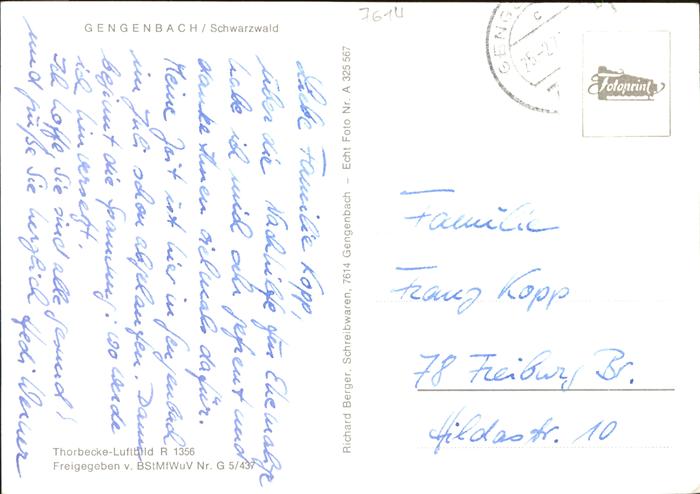 GENGENBACH / Schwarzwald
7614
Liebe Familie Kopp,
über die Nachricht für Ehemalige
habe ich mich sehr gefreut und
danke Ihnen vielmals dafür.
Meine Zeit ist hier in Gengenbach
im Juli schon abgelaufen. Dann
beginnt die Spannung: wo werde
ich hinversetzt.
Ich hoffe, Sie sind alle gesund!
und grüße Sie herzlich Hedi Werner
Thorbecke-Luftbild R 1356
Freigegeben v. BStMfWuV Nr. G 5/437
Richard Berger, Schreibwaren, 7614 Gengenbach – Echt Foto Nr. A 325 567
Fotoprint
Familie
Franz Kopp
78 Freiburg Br.
Hildastr. 10